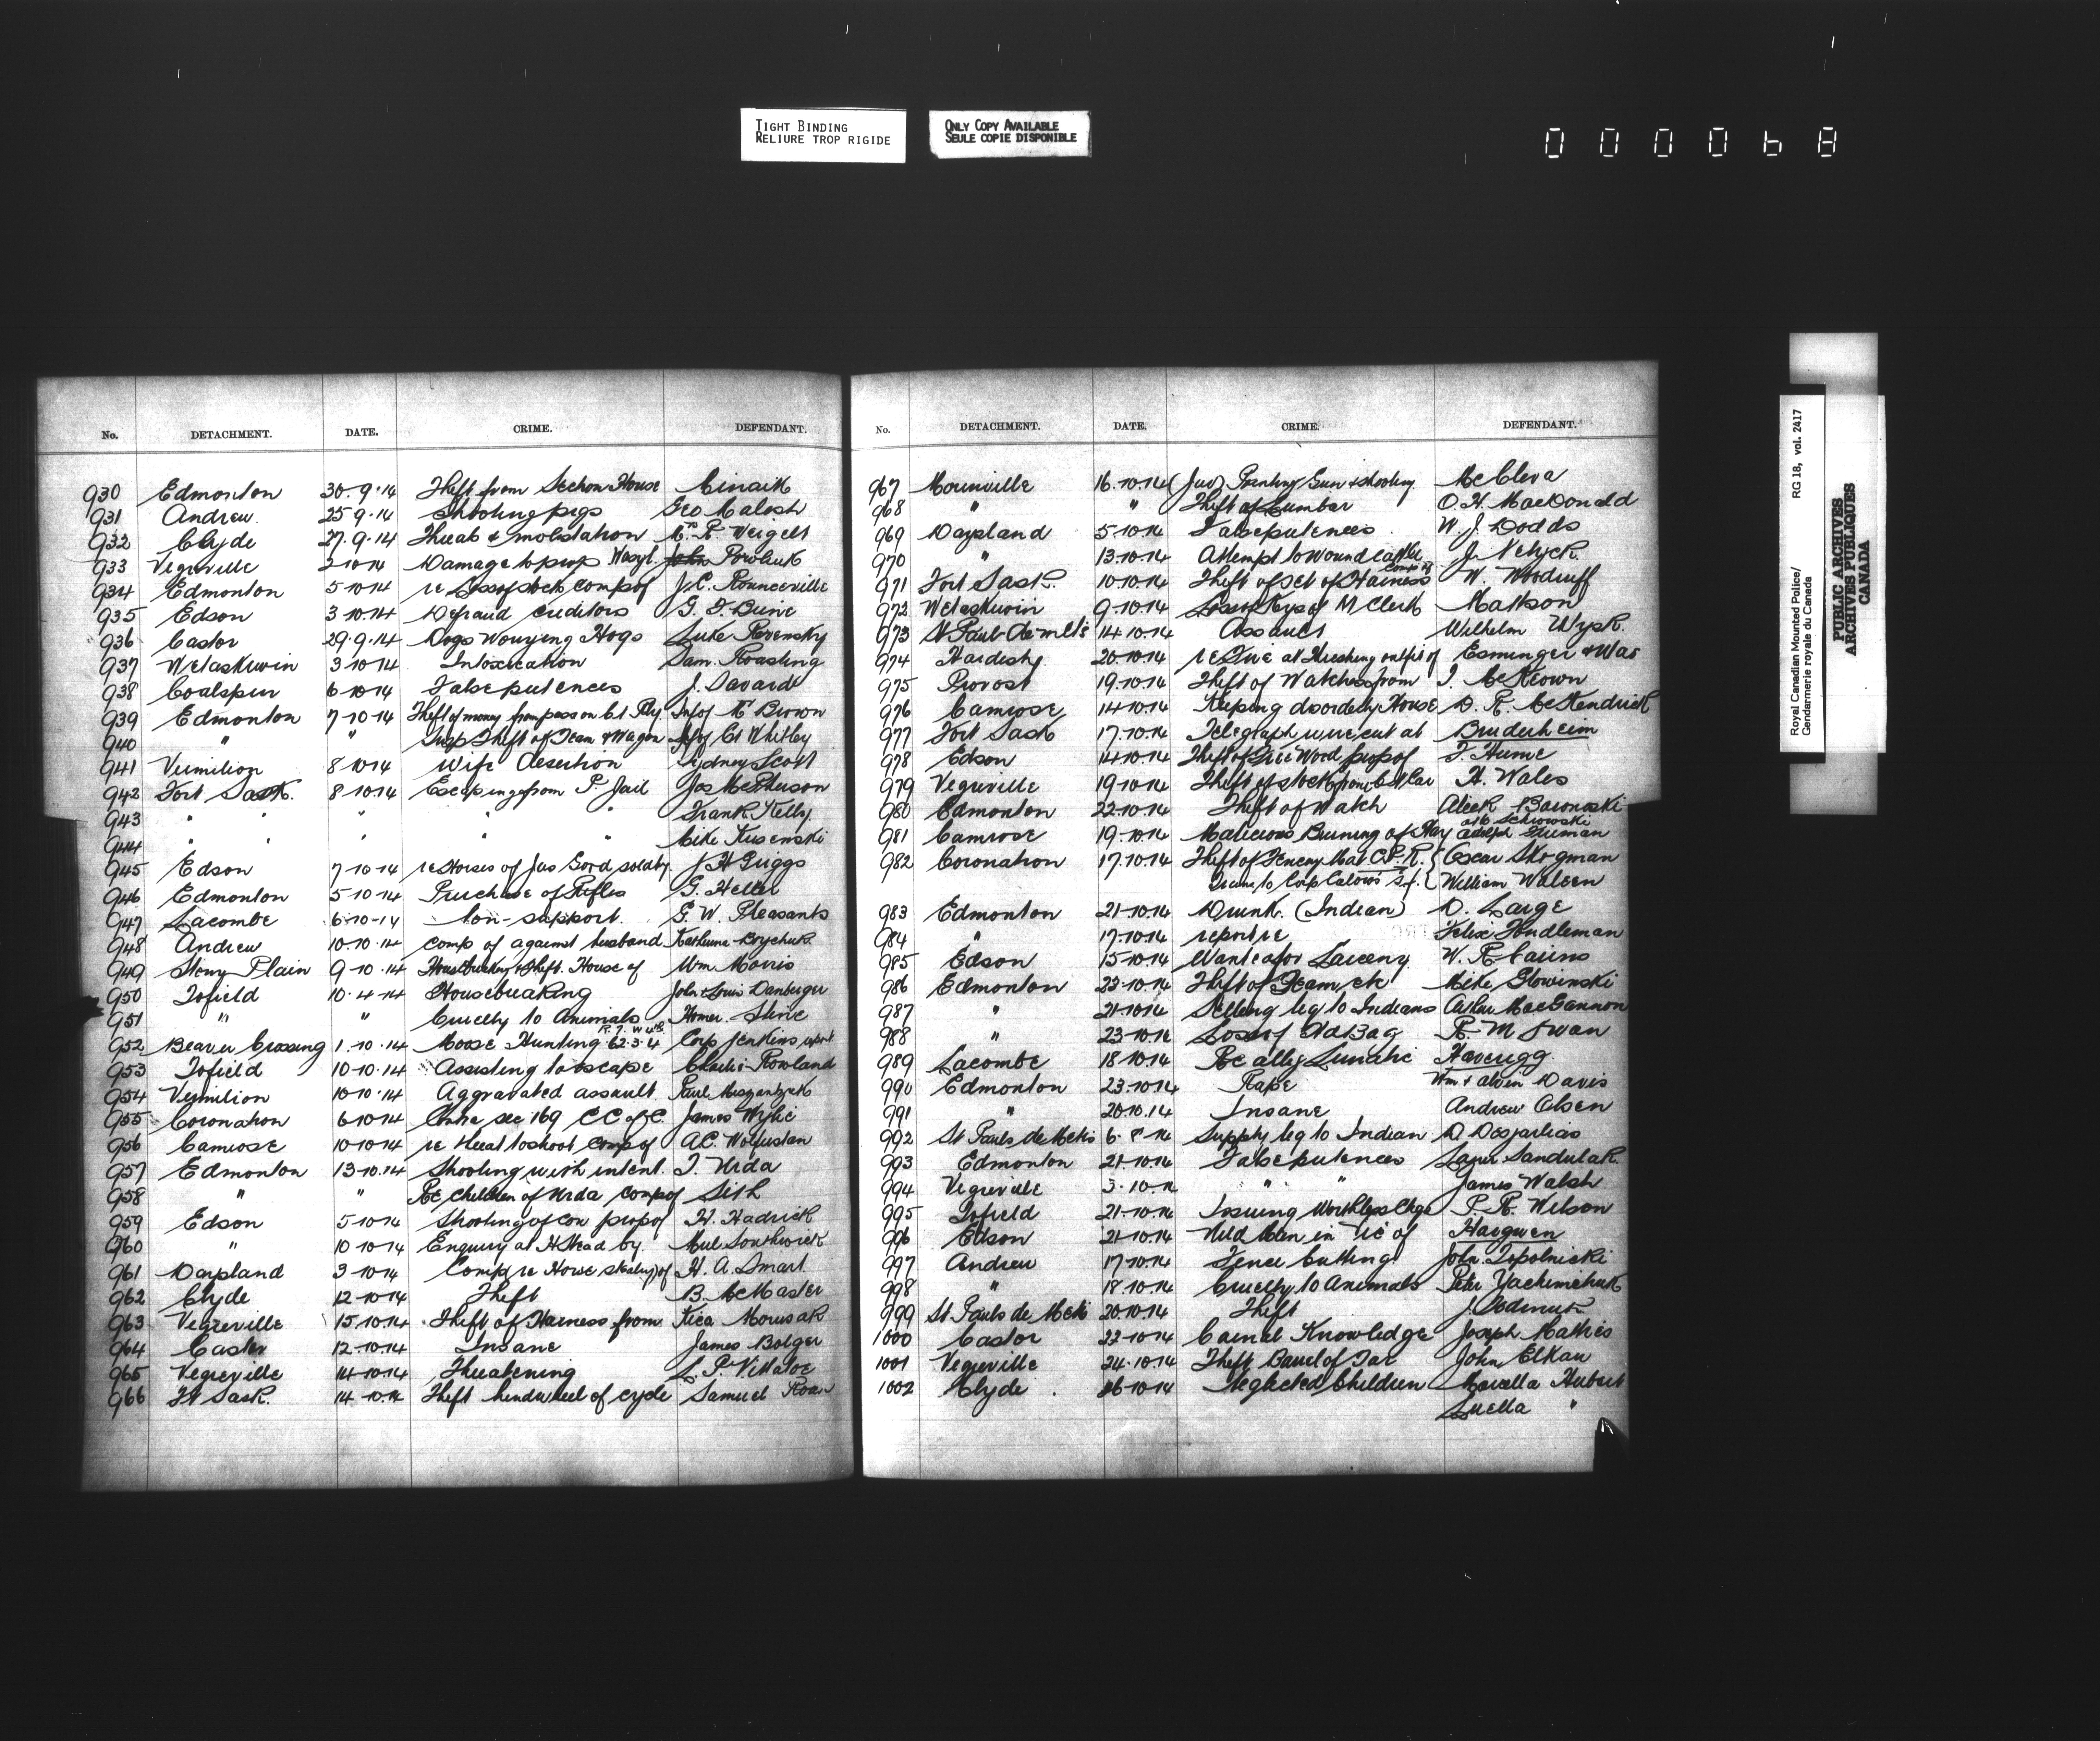 TIGHT BINDING
RELIURE TROP RIGIDE
ONLY COPY AVAILABLE
SEULE COPIE DISPONIBLE
0 0 0 0 6 8
No. DETACHMENT. DATE. CRIME. DEFENDANT.
930 Edmonton 30.9.14 Theft from Section House
931 Andrew 25 9.14 Shooting pigs Geo Malosh
932 Clyde 27.9.14 Threats & molstation Mrs R. Weigelt
933 Vegreville 2 10 14 Damage to prop Wasyl. John Powluk
934 Edmonton 5 10 14 re Loss of stock comp of J.C. Rounceville
935 Edson 3 10.14 Defraud creditors G. F. Buire
936 Castor 29.9.14 Dogs Worrying Hogs Luke Revensky
937 Wetaskiwin 3 10 14 Intoxication Sam. Roasting
938 Coalspur 6 10 14 False pretences J. Savard
939 Edmonton 7 10 14 Theft of money from pass on C.N. Rly. Info of Mr Brown
940 " " Susp Theft of Team & Wagon Info of Ct Whitley
941 Vermilion 8 10 14 Wife Desertion Sydney Scott
942 Fort Sask. 8 10.14 Escaping from P. Jail Jos McPherson
943 " " " Frank Kelly.
944 " " " " " Mike Kusenski
945 Edson 7 10 14 re Horses of Jas Gord sold by J H Griggs
946 Edmonton 5 10 14 Purchase of Rifles G. Heller
947 Lacombe 6-10-14 Non-support. G. W. Pleasants
948 Andrew 10-10.14 Comp of against husband Katherina Boychuk
949 Stony Plain 9-10.14 Housebreaking & Theft. House of Wm Morris
950 Tofield 10.4-14 Housebreaking John & Louis Danberger
951 " " Cruelty to Animals Homer Shire
952 Beaver Crossing 1.10.14 Moose Hunting R.7. W 4th 62.3.4 Corp Jenkins report
953 Tofield 10 10.14 Assisting to escape Charlie Rowland
954 Vermilion 10 10.14 Aggravated assault Paul
955 Coronation 6 10 14 Contra sec 169 C C of C. James Wylie
956 Camrose 10 10 14 re threat to shoot Comp of A.C. Wolfustan
957 Edmonton 13 10.14 Shooting with intent. T. Urda
958 " " Re Children of Urda Comp of Sith
959 Edson 5 10 14 Shooting of Cow prop of H. Hadrick
960 " 10 10 14 Enquiry at H Stead by Mul Southwick
961 Daysland 3-10 14 Comp re Horse stealing of H. A. Smart
962 Clyde 12-10 14 Theft B. McMaster
963 Vegreville 15 10 14 Theft of Harness from Kica Morusak
964 Castor 12-10.14 Insane James Bolger
965 Vegreville 14 10 14 Threatening L. P. Villatoe
966 Ft Sask. 14 10.14 Theft hindwheel of cycle Samuel Roan
No. DETACHMENT. DATE. CRIME. DEFENDANT.
967 Morinville 16.10.14 (Juv) Pointing Gun & shooting McCleva
968 " " Theft of Lumber O. H. MacDonald
969 Daysland 5-10 14 False pretences W. J. Dodds
970 " 13.10.14 Attempt to Wound cattle J. Netyck
971 Fort Sask. 10 10 14 Theft of Set of Harness Comp of W. Woodruff
972 Wetaskiwin 9-10.14 Loss of Keys of M Clerk Mattson
973 St Paul-de-metis 14 10.14 Assault Wilhelm Wysk.
974 Hardisty 20.10.14 re Fire at threshing outfit of Esminger & Was
975 Provost 19.10.14 Theft of Watches from I. McKeown
976 Camrose 14 10.14 Keeping disorderly House D. R. McKendrick
977 Fort Sask 17.10.14 Telegraph wire cut at Bruderheim
978 Edson 14 10.14 Theft of Fire Wood prop of F. Hume
979 Vegreville 19 10 14 Theft of stock from Cat Car H. Wales
980 Edmonton 22 10 14 Theft of Watch Aleck Baronoski
981 Camrose 19.10.14 Malicious Burning of Hay Otto Schiwoski Adolph Frieman
982 Coronation 17.10.14 Theft of Fencing Mat C.P.R. { Oscar Skogman
William Waleen
983 Edmonton 21-10.14 Drunk. (Indian) D. Large
984 " 17.10.14 report re Felix Hindleman
985 Edson 15-10.14 Wanted for Larceny W. R. Cairns
986 Edmonton 23-10.14 Theft of Team, etc Mike Glowinski
987 " 21-10.14 Selling liq to Indians Arthur MacGannon
988 " 23-10.14 Loss of Bag R. M Swan
989 Lacombe 18 10.14 Re alleg Lunatic Haverigg
990 Edmonton 23.10.14 Rape Wm & Alvin Davis
991 " 20.10.14 Insane Andrew Olsen
992 St Pauls de Metis 6. 8 14 Supply liq to Indian D Desjarlias
993 Edmonton 21-10.14 False pretences Lazur Sandulak
994 Vegreville 3.10.14 " " James Walsh
995 Tofield 21-10.14 Issuing Worthless Chqe P. R. Wilson
996 Edson 21-10.14 Wild Man in Vic of Hargwen
997 Andrew 17-10.14 Fence Cutting John Topolnicki
998 " 18.10.14 Cruelty to Animals Peter Yachimchuk
999 St Pauls de Metis 20 10.14 Theft J. Dodmus
1000 Castor 22-10 14 Carnal Knowledge Joseph Mathis
1001 Vegreville 24.10.14 Theft Barrel of Tar John Elkan
1002 Clyde. 16 10 14 Neglected Children Morella Hubert
Luella "
Royal Canadian Mounted Police/
Gendarmerie royale du Canada
RG 18, vol. 2417
PUBLIC ARCHIVES
ARCHIVES PUBLIQUES
CANADA